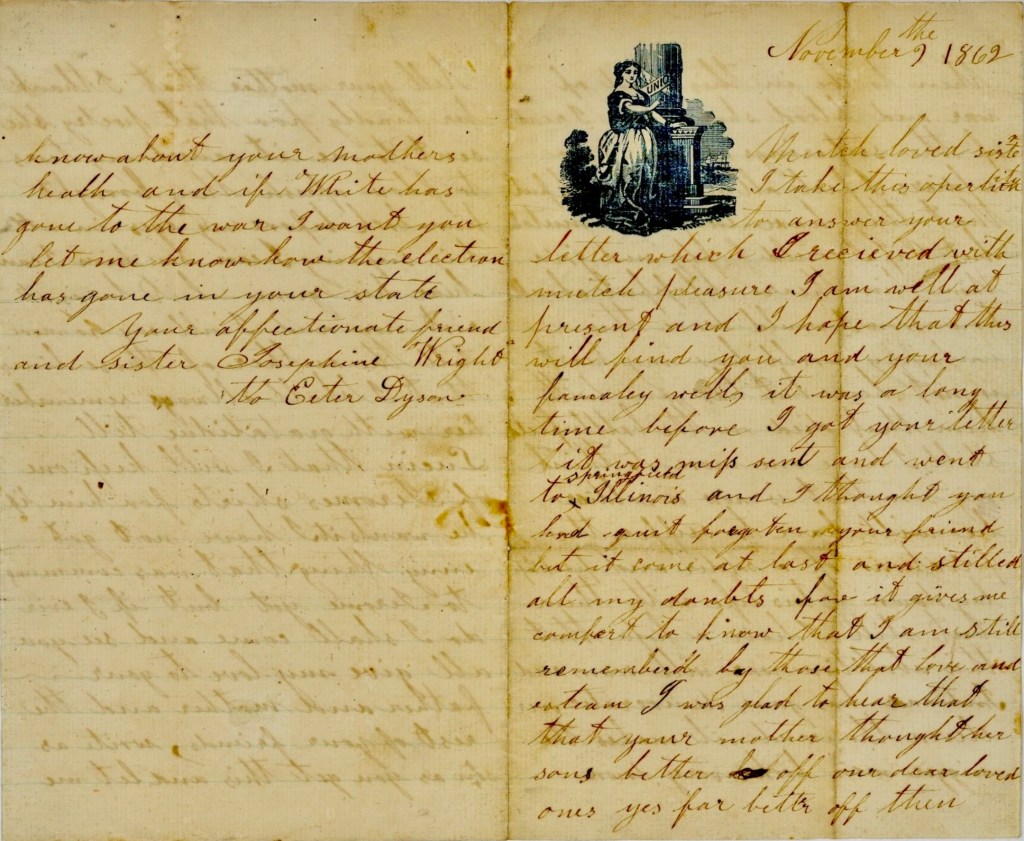 November the 9 1862
UNION
Mutch loved sister
I take this
to answer your
letter which I recieved with
mutch pleasure I am well at
present and I hope that this
will find you and your
famaley well it was a long
time before I got your letter
it was miss sent and went
to Springfield Illinois and I thought you
had quit forgoten your friend
but it come at last and stilled
all my doubts for it gives me
comfort to know that I am still
rememberd by those that love and
esteam I was glad to hear that
that your mother thought her
sons better off our dear loved
ones yes far bettr off then
know about your mothers
heath and if White has
gone to the war I want you
let me know how the election
has gone in your state
Your affectionate friend
and sister Josephine Wright
to Eeter Dyson